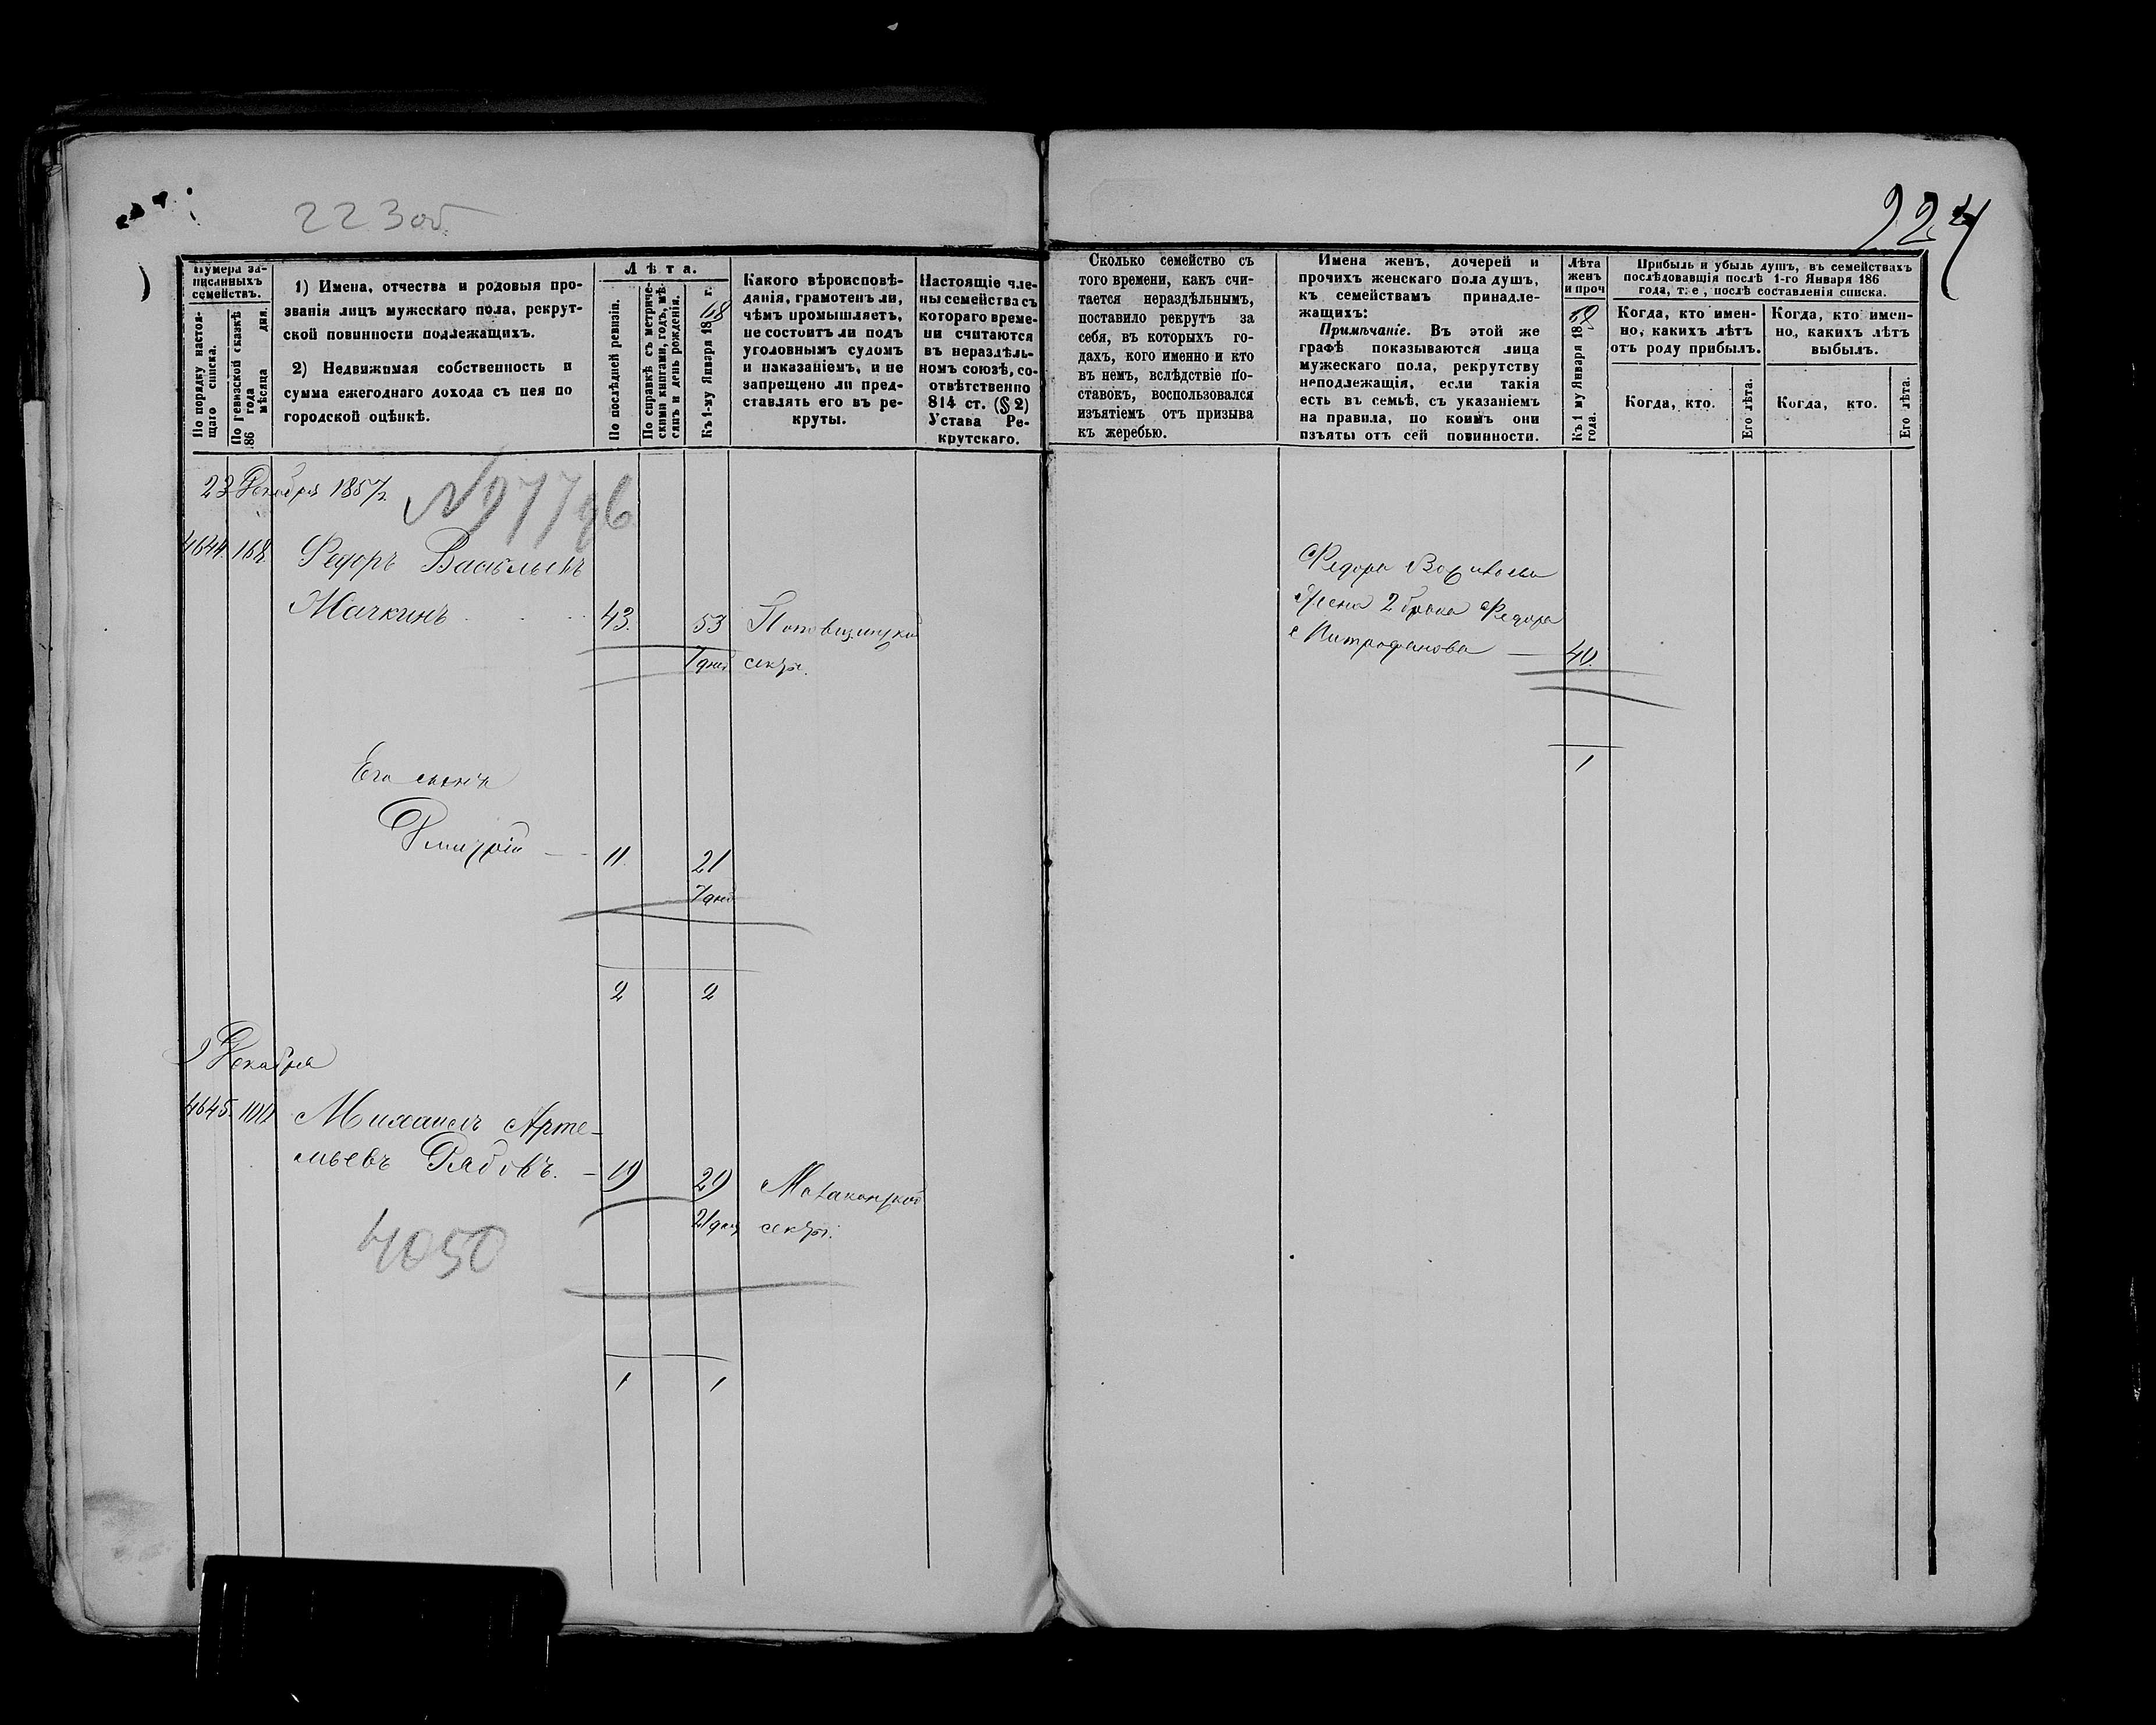 223 об
224
Нумера за-
писанныхъ
семействъ.
По порядку настоя-
щаго списка.
По ревизской сказкѣ
186 года
мѣсяца дня.
1) Имена, отчества и родовыя про-
званія лицъ мужескаго пола, рекрут-
ской повинности подлежащихъ.
2) Недвижимая собственность и
сумма ежегоднаго дохода съ нея по
городской оцѣнкѣ.
Лѣта.
По послѣдней ревизіи.
По справкѣ съ метриче-
скими книгами, годъ, мѣ-
сяцъ и день рожденія.
Къ 1-му Января 1868 г.
Какого вѣроисповѣ-
данія, грамотенъ ли,
чѣмъ промышляетъ,
не состоитъ ли подъ
уголовнымъ судомъ
и наказаніемъ, и не
запрещено ли пред-
ставлять его въ ре-
круты.
Настоящіе чле-
ны семейства съ
котораго време-
ни считаются
въ нераздѣль-
номъ союзѣ, со-
отвѣтственно
814 ст. (§ 2)
Устава Ре-
крутскаго.
Сколько семейство съ
того времени, какъ счи-
тается нераздѣльнымъ,
поставило рекрутъ за
себя, въ которыхъ го-
дахъ, кого именно и кто
въ немъ, вслѣдствіе по-
ставокъ, воспользовался
изъятіемъ отъ призыва
къ жеребью.
Имена женъ, дочерей и
прочихъ женскаго пола душъ,
къ семействамъ принадле-
жащихъ:
Примѣчаніе. Въ этой же
графѣ показываются лица
мужескаго пола, рекрутству
неподлежащія, если такія
есть въ семьѣ, съ указаніемъ
на правила, по коимъ они
изъяты отъ сей повинности.
Лѣта
женъ
и проч
Къ 1 му Января 1868
года.
Прибыль и убыль душъ, въ семействахъ
послѣдовавшія послѣ 1-го Января 186
года, т. е, послѣ составленія списка.
Когда, кто имен-
но, какихъ лѣтъ
отъ роду прибылъ.
Когда, кто имен-
но, какихъ лѣтъ
выбылъ.
Когда, кто.
Его лѣта.
Когда, кто.
Его лѣта.
23 Декабря 1857
4644. 168. Федоръ Васильевъ
Мачкинъ 43. 53
7 дней секты.
Федора Васильева
жена 2 брака Федора
Митрофанова — 40.
1
Его сынъ
Дмитрій — 11. 21
7 дней
2 2
Декабря
4645. Михаилъ Арте-
мьевъ Рябовъ. — 19 29 Молаканской
21 день секты.
4050
1 1